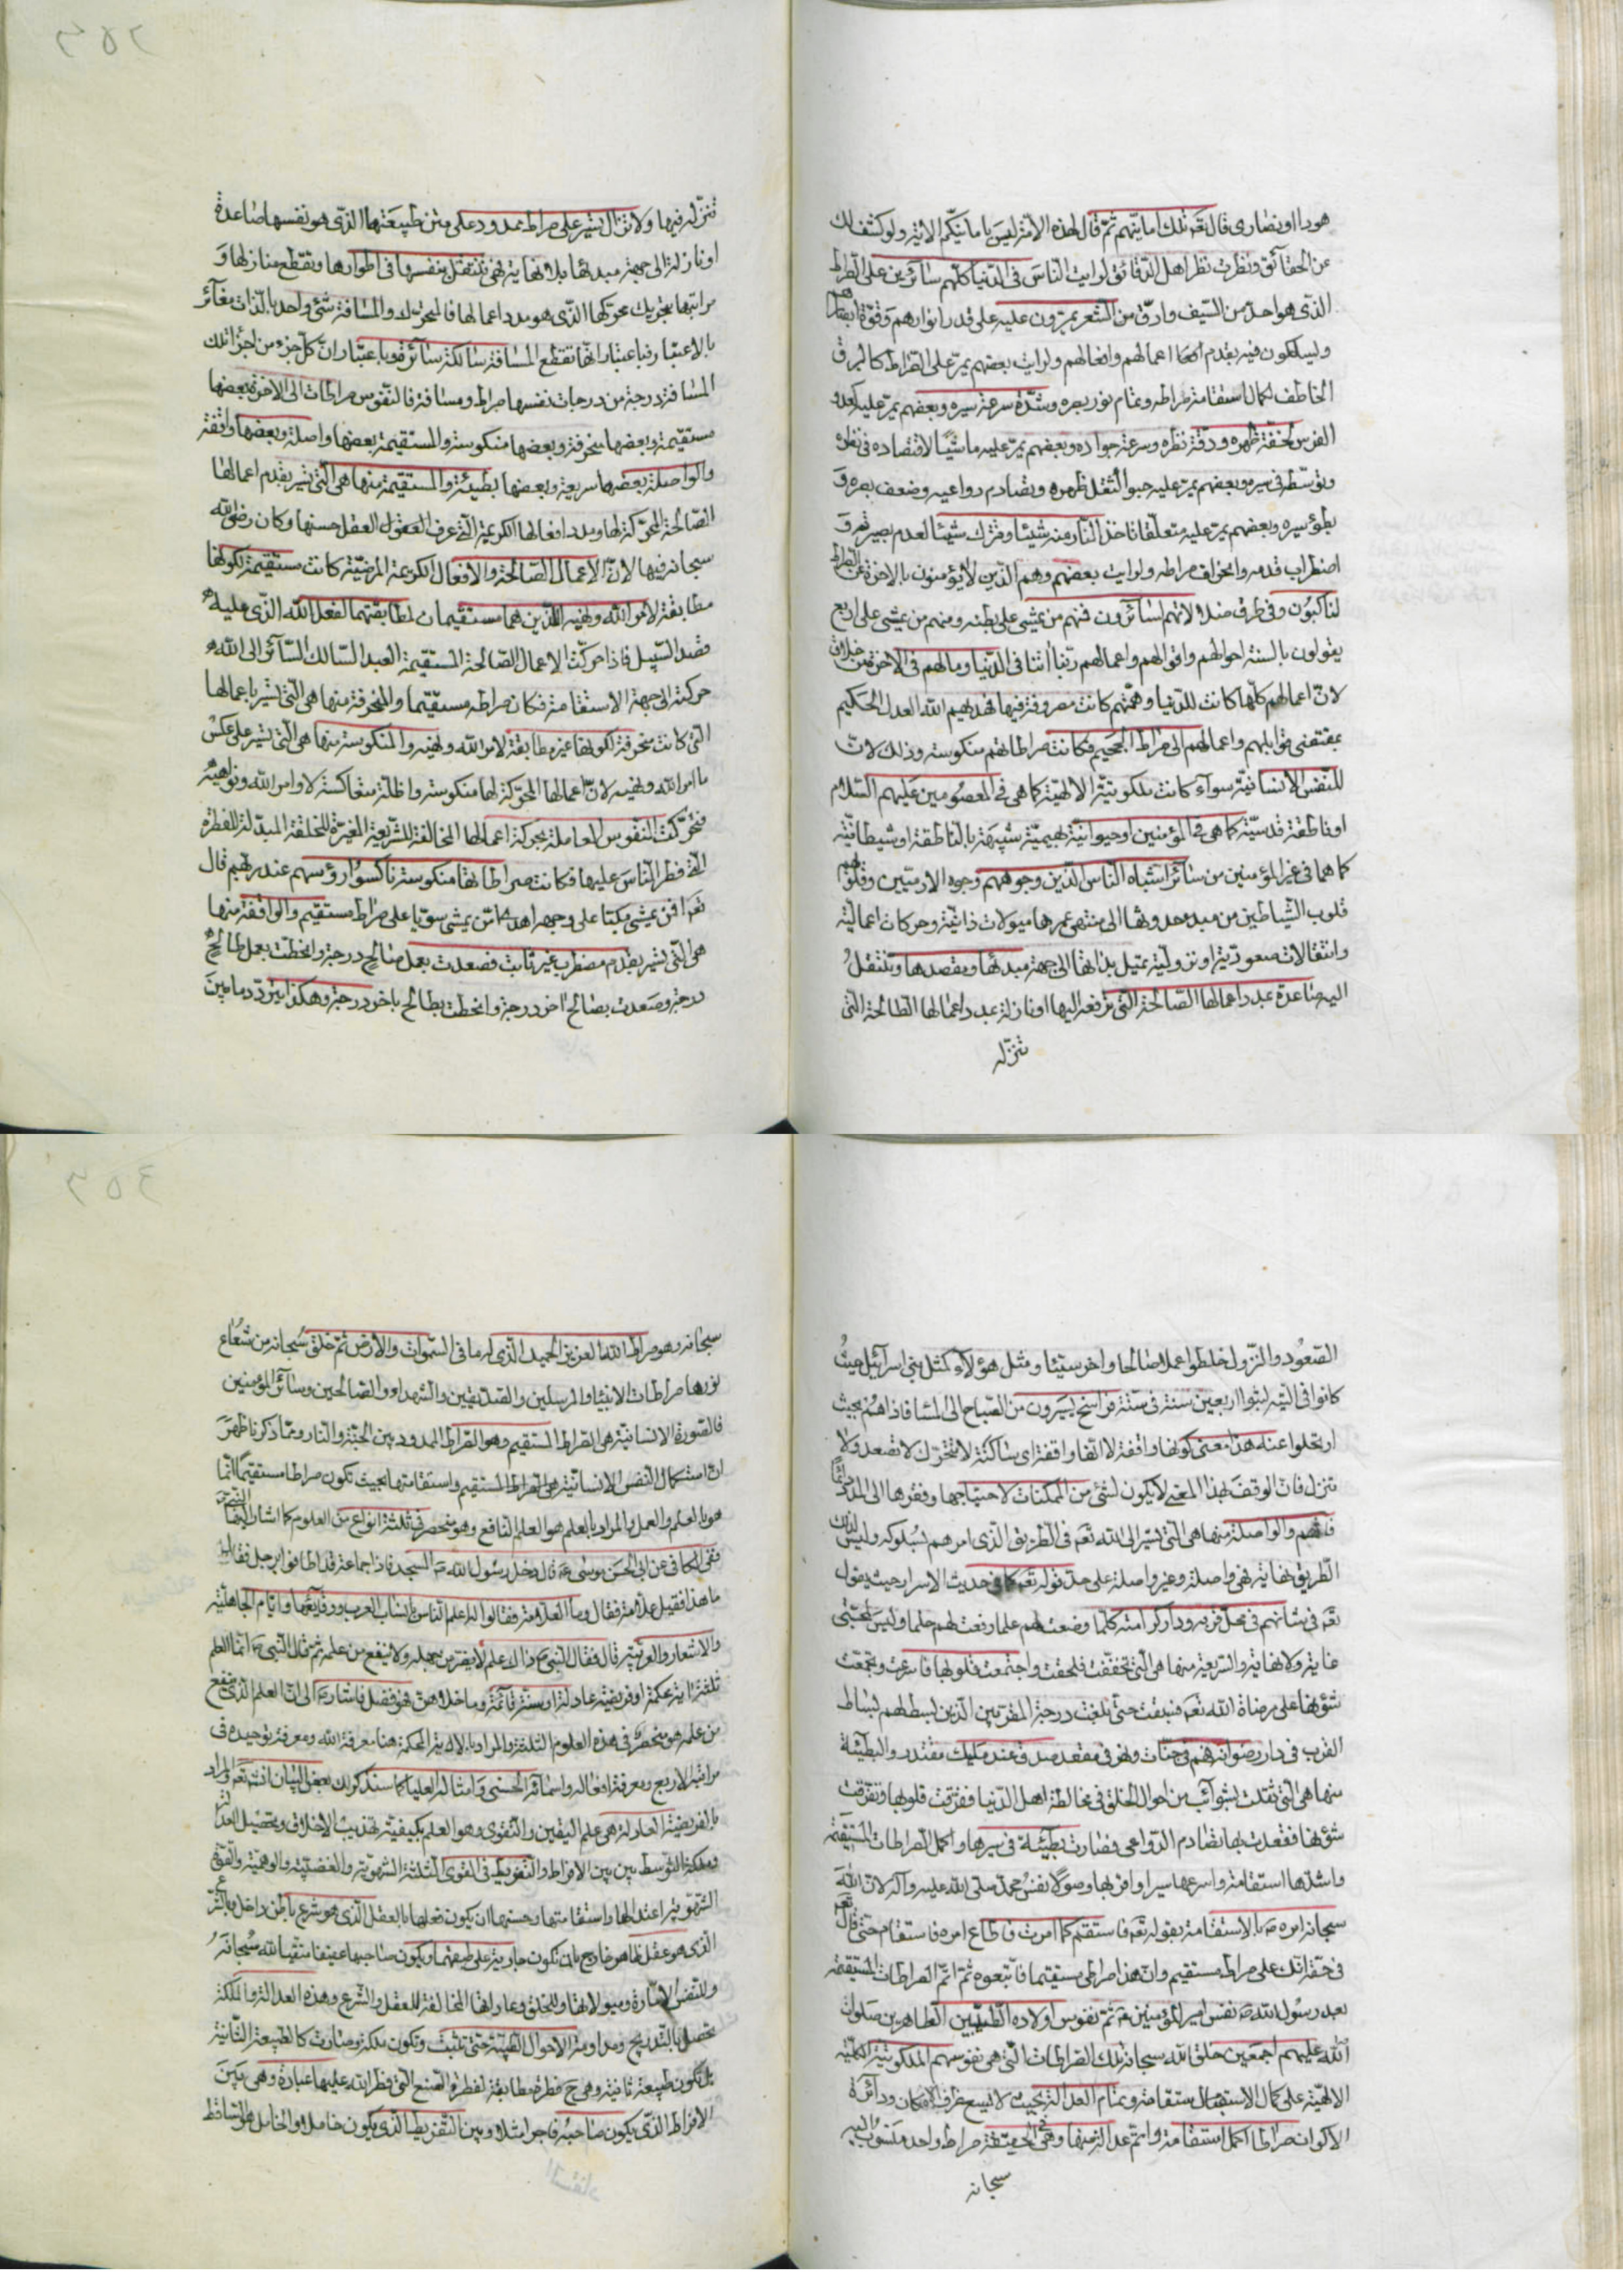 هودا اونصارى قال تعم تلك امانيّهم ثمّ قال لهذه الامّة ليس بامانيّكم الاية ولو كشف لك
عن الحقآئق ونظرت نظر اهل الدّقآئق لرايت النّاس فى الدّنيا كلّهم سآئرين على الصّراط
الذّى هو احدّ من السّيف وادقّ من الشّعر يمرّون عليه على قدر انوارهم وقوّة ابصارهم
ويسلكون فيه بقدم اعمالهم وافعالهم ولرايت بعضهم يمرّ على الصّراط كالبرق
الخاطف لكمال استقامة صراطه وتمام نور بصره وشدّة سرعة سيره وبعضهم يمرّ عليه كعدو
الفرس لخفّة ظهره ودقّة نظره وسرعة جواده وبعضهم يمرّ عليه ماشيًا لاقتصاده فى نظره
وتوسّطه فى سيره وبعضهم يمرّ عليه حبوا لثقل ظهره وتصادم دواعيه وضعف بصره و
بطؤ سيره وبعضهم يمرّ عليه متعلّقا تاخذ النّار منه شيئا وتترك شيئا لعدم بصيرته و
اضطراب قدمه وانحراف صراطه ولرايت بعضهم وهم الّذين لا يؤمنون بالاخرة عن الصّراط
لناكبون وفى طرف ضلالاتهم لسآئرون فمنهم من يمشى على بطنه ومنهم من يمشى على اربع
يقولون بالسنة احوالهم واقوالهم واعمالهم ربّنا اتنا فى الدّنيا وما لهم فى الاخرة من خلاق
لانّ اعمالهم كلّها كانت للدّنيا وهمّتهم كانت مصروفة فيها فهديهم الله العدل الحكيم
بمقتضى قوابلهم واعمالهم الى صراط الجحيم فكانت صراطاتهم منكوسة وذلك لانّ
للنّفس الانسانيّة سوآء كانت ملكوتيّة الالهيّة كما هى فى المعصومين عليهم السّلام
او ناطقة قدسيّة كما هى فى المؤمنين او حيوانيّة بهيميّة شبيهة بالنّاطقة او شيطانيّة
كما هما فى غير المؤمنين من سآئر اشباه النّاس الّذين وجوههم وجوه الادميّين وقلوبهم
قلوب الشّياطين من مبدء حدوثها الى منتهى عمرها ميولات ذاتيّة وحركات اعماليّة
وانتقالات صعوديّة او نزوليّة تميل بذاتها الى جهة مبدئها وبقصدها وتنتقل
اليه صاعدة بمدد اعمالها الصّالحة الّتى ترفعه اليها او نازلة بمدد اعمالها الطّالحة الّتى
تنزّله
تنزّله فيها ولا تزال تسير على صراط ممدود على متن طبيعتها الذّى هو نفسها صاعدة
او نازلة الى جهة مبدئها بلا نهاية فهى تنتقل بنفسها فى اطوارها وتقطع منازلها و
مراتبها بتحريك محرّكها الذّى هو مدد اعمالها فالمتحرّك والمسافة شئ واحد بالذّات مغآئر
بالاعتبار فباعتبار انّها تقطع المسافة سالكة سآئرة وباعتبار انّ كلّ جزء من اجزآء تلك
المسافة درجة من درجات نفسها صراط ومسافة فالنّفوس صراطات الى الاخرة بعضها
مستقيمة وبعضها منحرفة وبعضها منكوسة والمستقيمة بعضها واصلة وبعضها واقفة
والواصلة بعضها سريعة وبعضها بطيئة والمستقيمة منها هى الّتى تسير بقدم اعمالها
الصّالحة المحرّكة لها ومدد افعالها الكريمة الّتى عرف العقول العقل حسنها وكان رضى الله
سبحانه فيها لانّ الاعمال الصّالحة والافعال الكريمة المرضيّة كانت مستقيمة لكونها
مطابقة لامر الله ونهيه الّلذين هما مستقيمان لمطابقتهما لفعل الله الذّى عليه
قصد السّبيل فاذا حرّكت الاعمال الصّالحة المستقيمة العبد السّالك السّآئر الى الله
حركته الى جهة الاستقامة فكان صراطه مستقيما والمنحرفة منها هى الّتى تسير باعمالها
الّتى كانت منحرفة لكونها غير مطابقة لامر الله ونهيه والمنكوسة منها هى الّتى تسير على عكس
ما امر الله ونهيه لانّ اعمالها المحرّكة لها منكوسة واظلّة متعاكسة لاوامر الله ونواهيه
فتحرّكت النّفوس العاملة بحركة اعمالها المخالفة للشّريعة المغيّرة للخلقة المبدّلة للفطرة
الّتى فطر النّاس عليها فكانت صراطاتها منكوسة ناكسوا رؤسهم عند ربّهم قال
تعم افمن يمشى مكبّا على وجهه اهدى امّن يمشى سويّا على صراط مستقيم والواقفة منها
هى الّتى تسير بقدم مضطرب غير ثابت فصعدت بعمل صالح درجة وانحطّت بعمل طالح
درجة وصعدت بصالح اخر درجة وانحطّت بطالح باخر درجة وهكذا يتردّد ما بين
الصّعود والنّزول خلطوا عملا صالحا واخر سيّئا ومثل هؤلآء كمثل بنى اسرآئيل حيث
كانوا فى التّيه لبثوا اربعين سنة فى ستّة فراسخ يسيرون من الصّباح الى المسا فاذا هم بحيث
ارتحلوا عنه هذا معنى كونها واقفة لا انّها واقفة اى ساكنة لا تتحرّك لا تصعد ولا
تنزل فانّ الوقوف بهذا المعنى لا يكون لشئ من الممكنات لاحتياجها وفقرها الى المدد دآئما
والواصلة منها هى الّتى تسير الى الله تعم فى الطّريق الذّى امرهم بسلوكه وليس لذلك
الطّريق نهاية فهى واصلة وغير واصلة على حدّ قوله تعم كما فى حديث الاسرار حيث يقول
تعم فى شانهم فى محلّ قربه ودار كرامته كلّما وضعت لهم علما رفعت لهم حلما وليس لمحبّتى
غاية ولا نهاية والسّريعة منها هى الّتى تخفّفت فلحقت واجتمعت قلوبها فاسرعت وتجمّعت
شؤنها على مرضاة الله تعم فسبقت حتّى بلغت درجة المقرّبين الّذين بسطهم لبساط
القرب فى دار رضوانه فهم فى جنّات ونهر فى مقعد صدق عند مليك مقتدر والبطيئة
منها هى الّتى ثقلت بشوآئب من احوال الخلق فى مخالطة اهل الدّنيا ففرّقت قلوبها وتفرّقت
شؤنها فقعدت بها تصادم الدّواعى فصارت بطيئة فى سيرها واكمل الصّراطات المستقيمة
واشدّها استقامة واسرعها سيرا واقربها وصولا نفس محمّد صلّى الله عليه وآله لانّ الله
سبحانه امره ص بالاستقامة بقوله تعم فاستقم كما امرت فاطاع امره فاستقام حتّى قال تعم
فى حقّه انّك على صراط مستقيم وانّ هذا صراطى مستقيما فاتّبعوه ثمّ اتمّ الصّراطات المستقيمة
بعد رسول الله ص نفس امير المؤمنين ع ثمّ نفوس اولاده الطّيّبين الطّاهرين صلوات
الله عليهم اجمعين خلق الله سبحانه تلك الصّراطات الّتى هى نفوسهم الملكوتيّة الكلّيّة
الالهيّة على كمال الاستقامة وتمام العدالة بحيث لا يسع ظرف الامكان ودآئرة
الاكوان صراطا اكمل استقامة واتمّ عدالة منها وهى فى الحقيقة صراط واحد منسوب اليه
سبحانه
سبحانه وهو صراط الله العزيز الحميد الذّى له ما فى السّموات والارض ثمّ خلق سبحانه من شعاع
نورها صراطات الانبيآء والمرسلين والصّدّيقين والشّهدآء والصّالحين وسآئر المؤمنين
فالصّورة الانسانيّة هى الصّراط المستقيم وهو الصّراط الممدود بين الجنّة والنّار وممّا ذكرنا ظهر
انّ استكمال النّفس الانسانيّة هى الصّراط المستقيم واستقامتها بحيث تكون صراطا مستقيما انّما
هو بالعلم والعمل والمراد بالعلم هو العلم النّافع وهو منحصر فى ثلثة انواع من العلوم كما اشار اليها النّبى ص
ففى الكافى عن ابى الحسن موسى ع قال دخل رسول الله ص المسجد فاذا جماعة قد اطافوا برجل فقال
ما هذا فقيل علّامة فقال وما العلّامة فقالوا له اعلم النّاس بانساب العرب ووقآئعها وايّام الجاهليّة
والاشعار والعربيّة قال فقال النّبى ص ذاك علم لا يضرّ من جهله ولا ينفع من علمه ثمّ قال النّبى ص انّما العلم
ثلثة اية محكمة او فريضة عادلة او سنّة قآئمة وما خلاهنّ فهو فضل فاشار ص الى انّ العلم الذّى ينفع
من علمه هو منحصر فى هذه العلوم الثّلثة والمراد بالاية المحكمة هنا معرفة الله ومعرفة توحيده فى
مراتبه الاربع ومعرفة افعاله واسمآئه الحسنى وامثاله العليا كما سنذكر لك بعض البيان انش تعم والمراد
بالفريضة العادلة هى علم اليقين والتّقوى وهو العلم بكيفيّة تهذيب الاخلاق وتحصيل العدالة
وملكة التّوسّط بين بين الافراط والتّفريط فى القوى الثّلثة الشّهويّة والغضبيّة والوهميّة والقوّة
الشّهويّة اعتدالها واستقامتها وحسنها ان يكون فعلها بالعقل الذّى هو شرع باطن داخل وبالشّرع
الذّى هو عقل ظاهر خارج بان تكون جارية على طبقهما ويكون صاحبها عفيفا متّقيا لله سبحانه
وللنّفس الامّارة وميولاتها وللخلق وعاداتها المخالفة للعقل والشّرع وهذه العدالة والملكة
تحصل بالتّدريج ومداومة الاحوال الطّيّبة حتّى تثبت وتكون ملكة وصارت كالطّبيعة الثّانية
بل تكون طبيعة ثانية وهى ح فطرة مطابقة لفطرة الصّنع الّتى فطر الله عليها عباده وهى بين
الافراط الذّى يكون صاحبه فاجرا مثلا وبين التّفريط الذّى يكون خاملا والخامل هو السّاقط